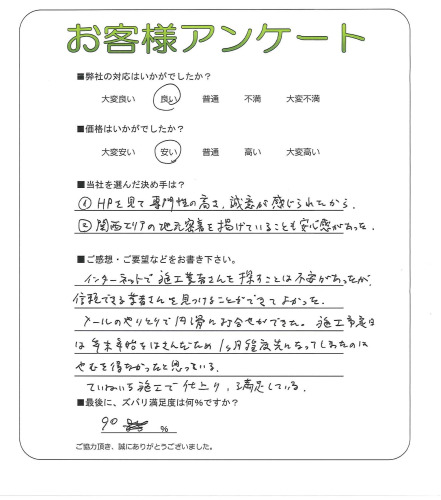 お客様アンケート
■弊社の対応はいかがでしたか?
大変良い 良い 普通 不満 大変不満
■価格はいかがでしたか?
大変安い 安い 普通 高い 大変高い
■当社を選んだ決め手は?
① HPを見て専門性の高さ、誠意が感じられたから.
② 関西エリアの地元密着を掲げていることも安心感があった.
■ご感想・ご要望などをお書き下さい。
インターネットで施工業者さんを探すことは不安があったが、
信頼できる業者さんを見つけることができてよかった.
メールのやりとりで円滑に打合せができた。施工予定日
は年末年始をはさんだため1ヶ月程度先になってしまったのは
やむを得なかったと思っている.
ていねいな施工で仕上り、満足している.
■最後に、ズバリ満足度は何%ですか?
90 %
ご協力頂き、誠にありがとうございました。